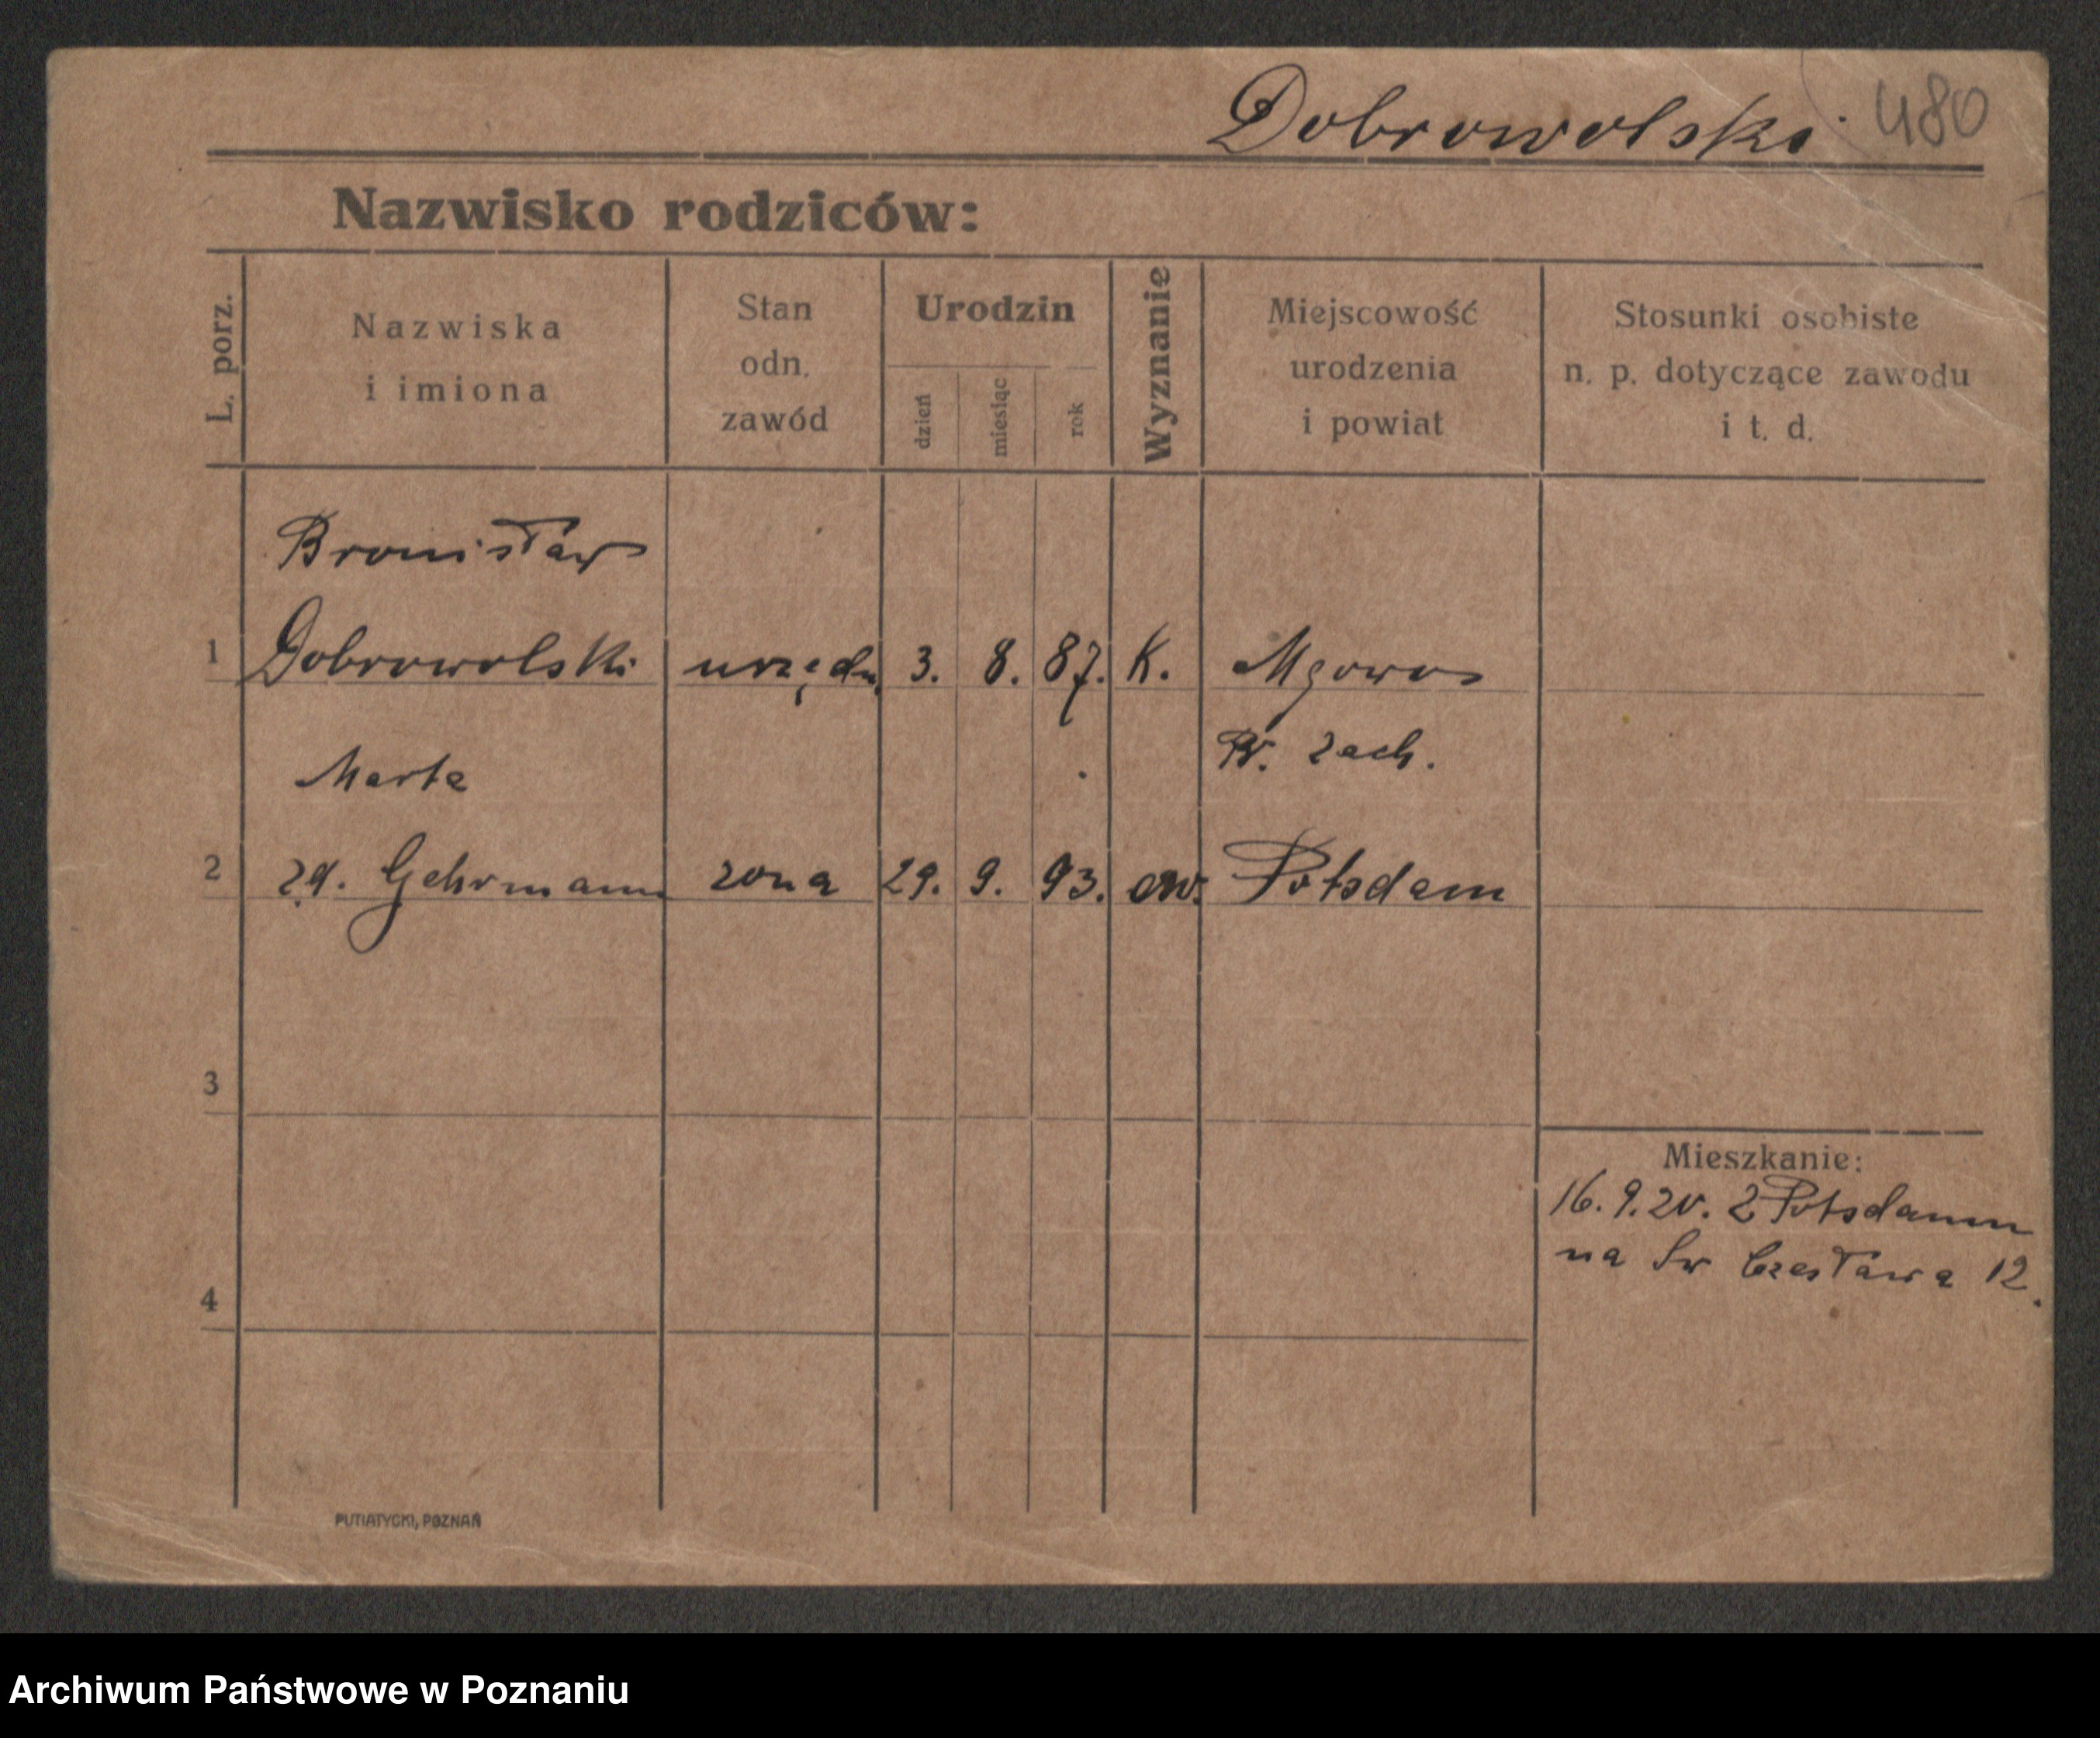 Dobrowolski 480
Nazwisko rodziców:
L. porz.
Nazwiska
i imiona
Stan
odn.
zawód
Urodzin
dzień
miesiąc
rok
Wyznanie
Miejscowość
urodzenia
i powiat
Stosunki osobiste
n. p. dotyczące zawodu
i t. d.
Bronisław
1 Dobrowolski urzędn 3. 8. 87. K. Mgowo
Pr. zach.
Marta
2 zd. Gehrmann zona 29. 9. 93. ew. Potsdam
3
Mieszkanie:
16. 9. 20. z Potsdamm
na Św Czesława 12.
4
PUTIATYCKI, POZNAŃ
Archiwum Państwowe w Poznaniu